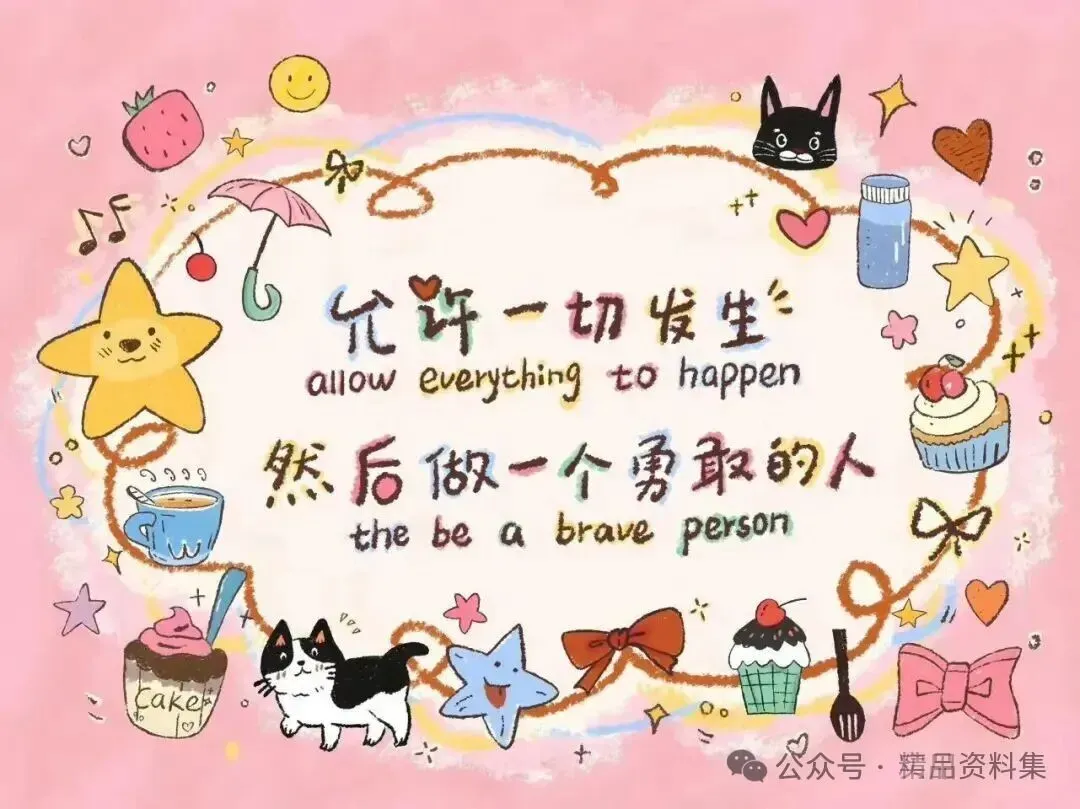 允许一切发生
allow everything to happen
然后做一个勇敢的人
the be a brave person
cake
公众号 · 精品资料集